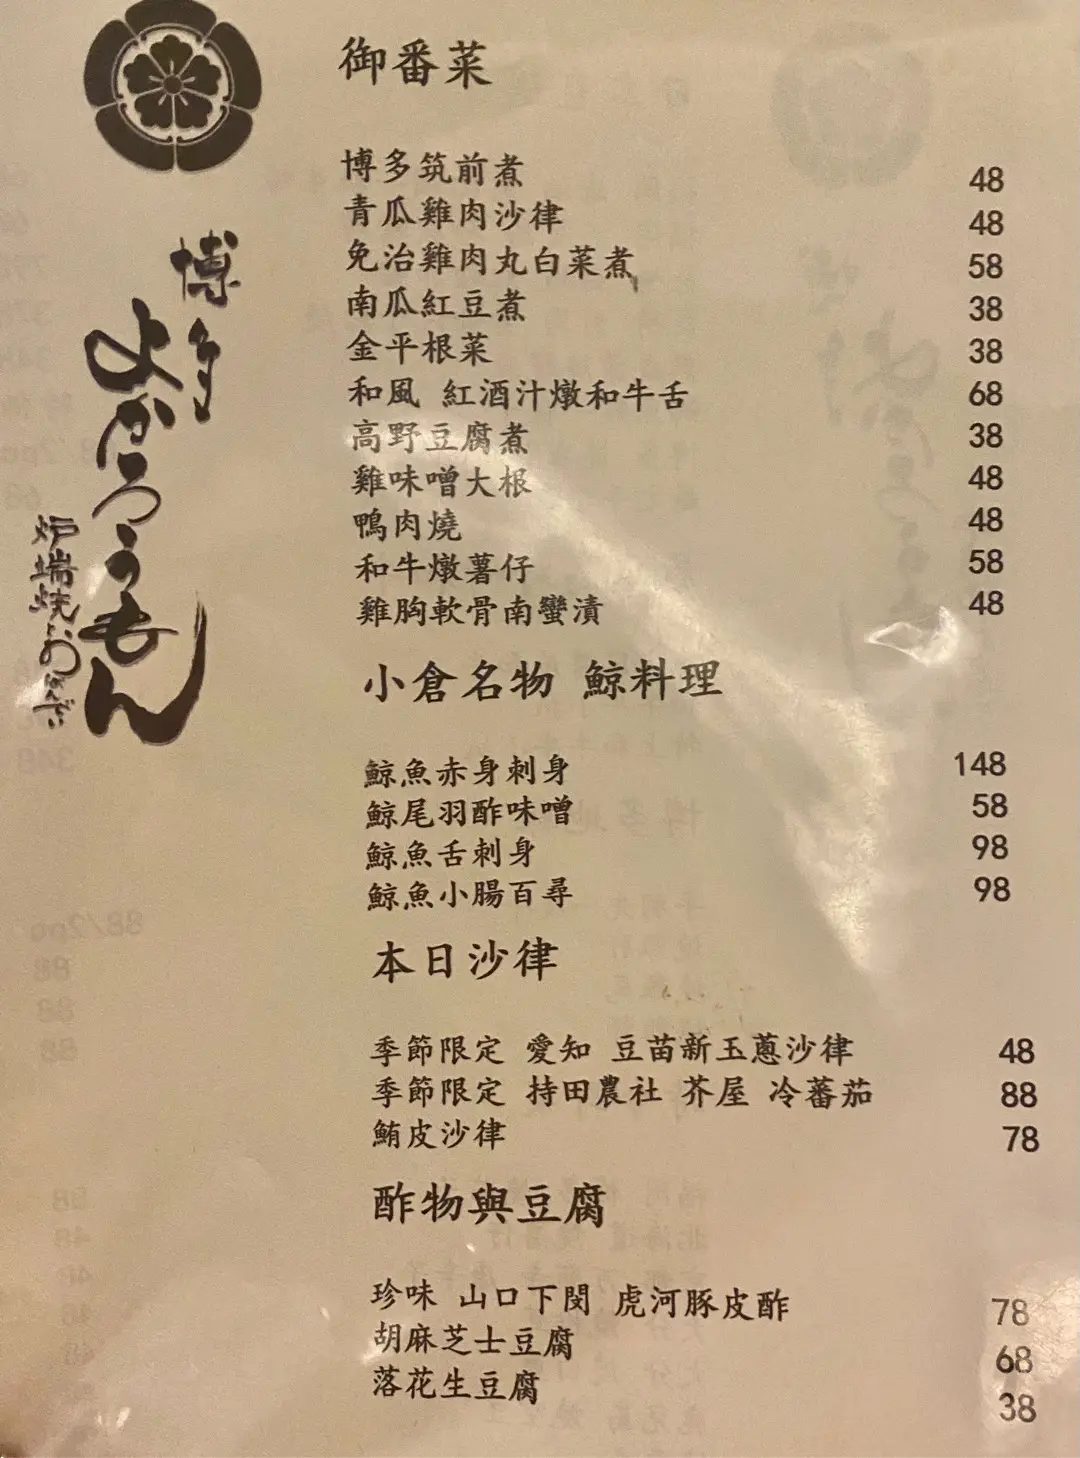 博多
よかろうもん
炉端焼とおばんざい
御番菜
博多筑前煮 48
青瓜雞肉沙律 48
免治雞肉丸白菜煮 58
南瓜紅豆煮 38
金平根菜 38
和風 紅酒汁燉和牛舌 68
高野豆腐煮 38
雞味噌大根 48
鴨肉燒 48
和牛燉薯仔 58
雞胸軟骨南蠻漬 48
小倉名物 鯨料理
鯨魚赤身刺身 148
鯨尾羽酢味噌 58
鯨魚舌刺身 98
鯨魚小腸百尋 98
本日沙律
季節限定 愛知 豆苗新玉蔥沙律 48
季節限定 持田農社 芥屋 冷蕃茄 88
鮪皮沙律 78
酢物與豆腐
珍味 山口下関 虎河豚皮酢 78
胡麻芝士豆腐 68
落花生豆腐 38